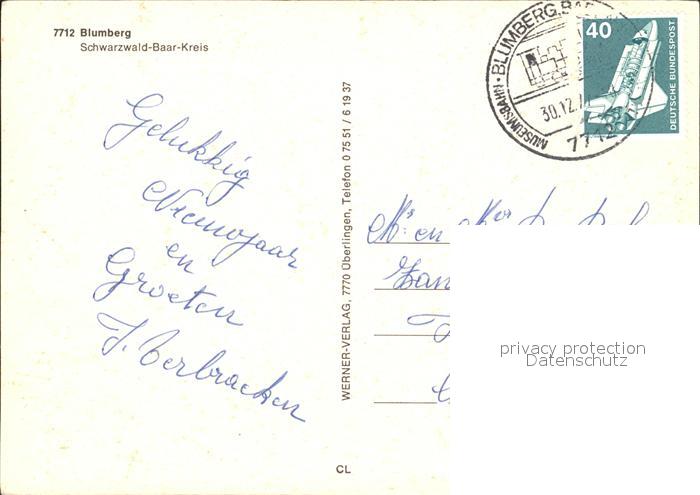 7712 Blumberg
Schwarzwald-Baar-Kreis
Gelukkig
Nieuwjaar
en
Groeten
WERNER-VERLAG, 7770 Überlingen, Telefon 0 75 51 / 6 19 37
CL
MUSEUMSBAHN · BLUMBERG, BAD
30.12.
7712
40
DEUTSCHE BUNDESPOST
en
privacy protection
Datenschutz